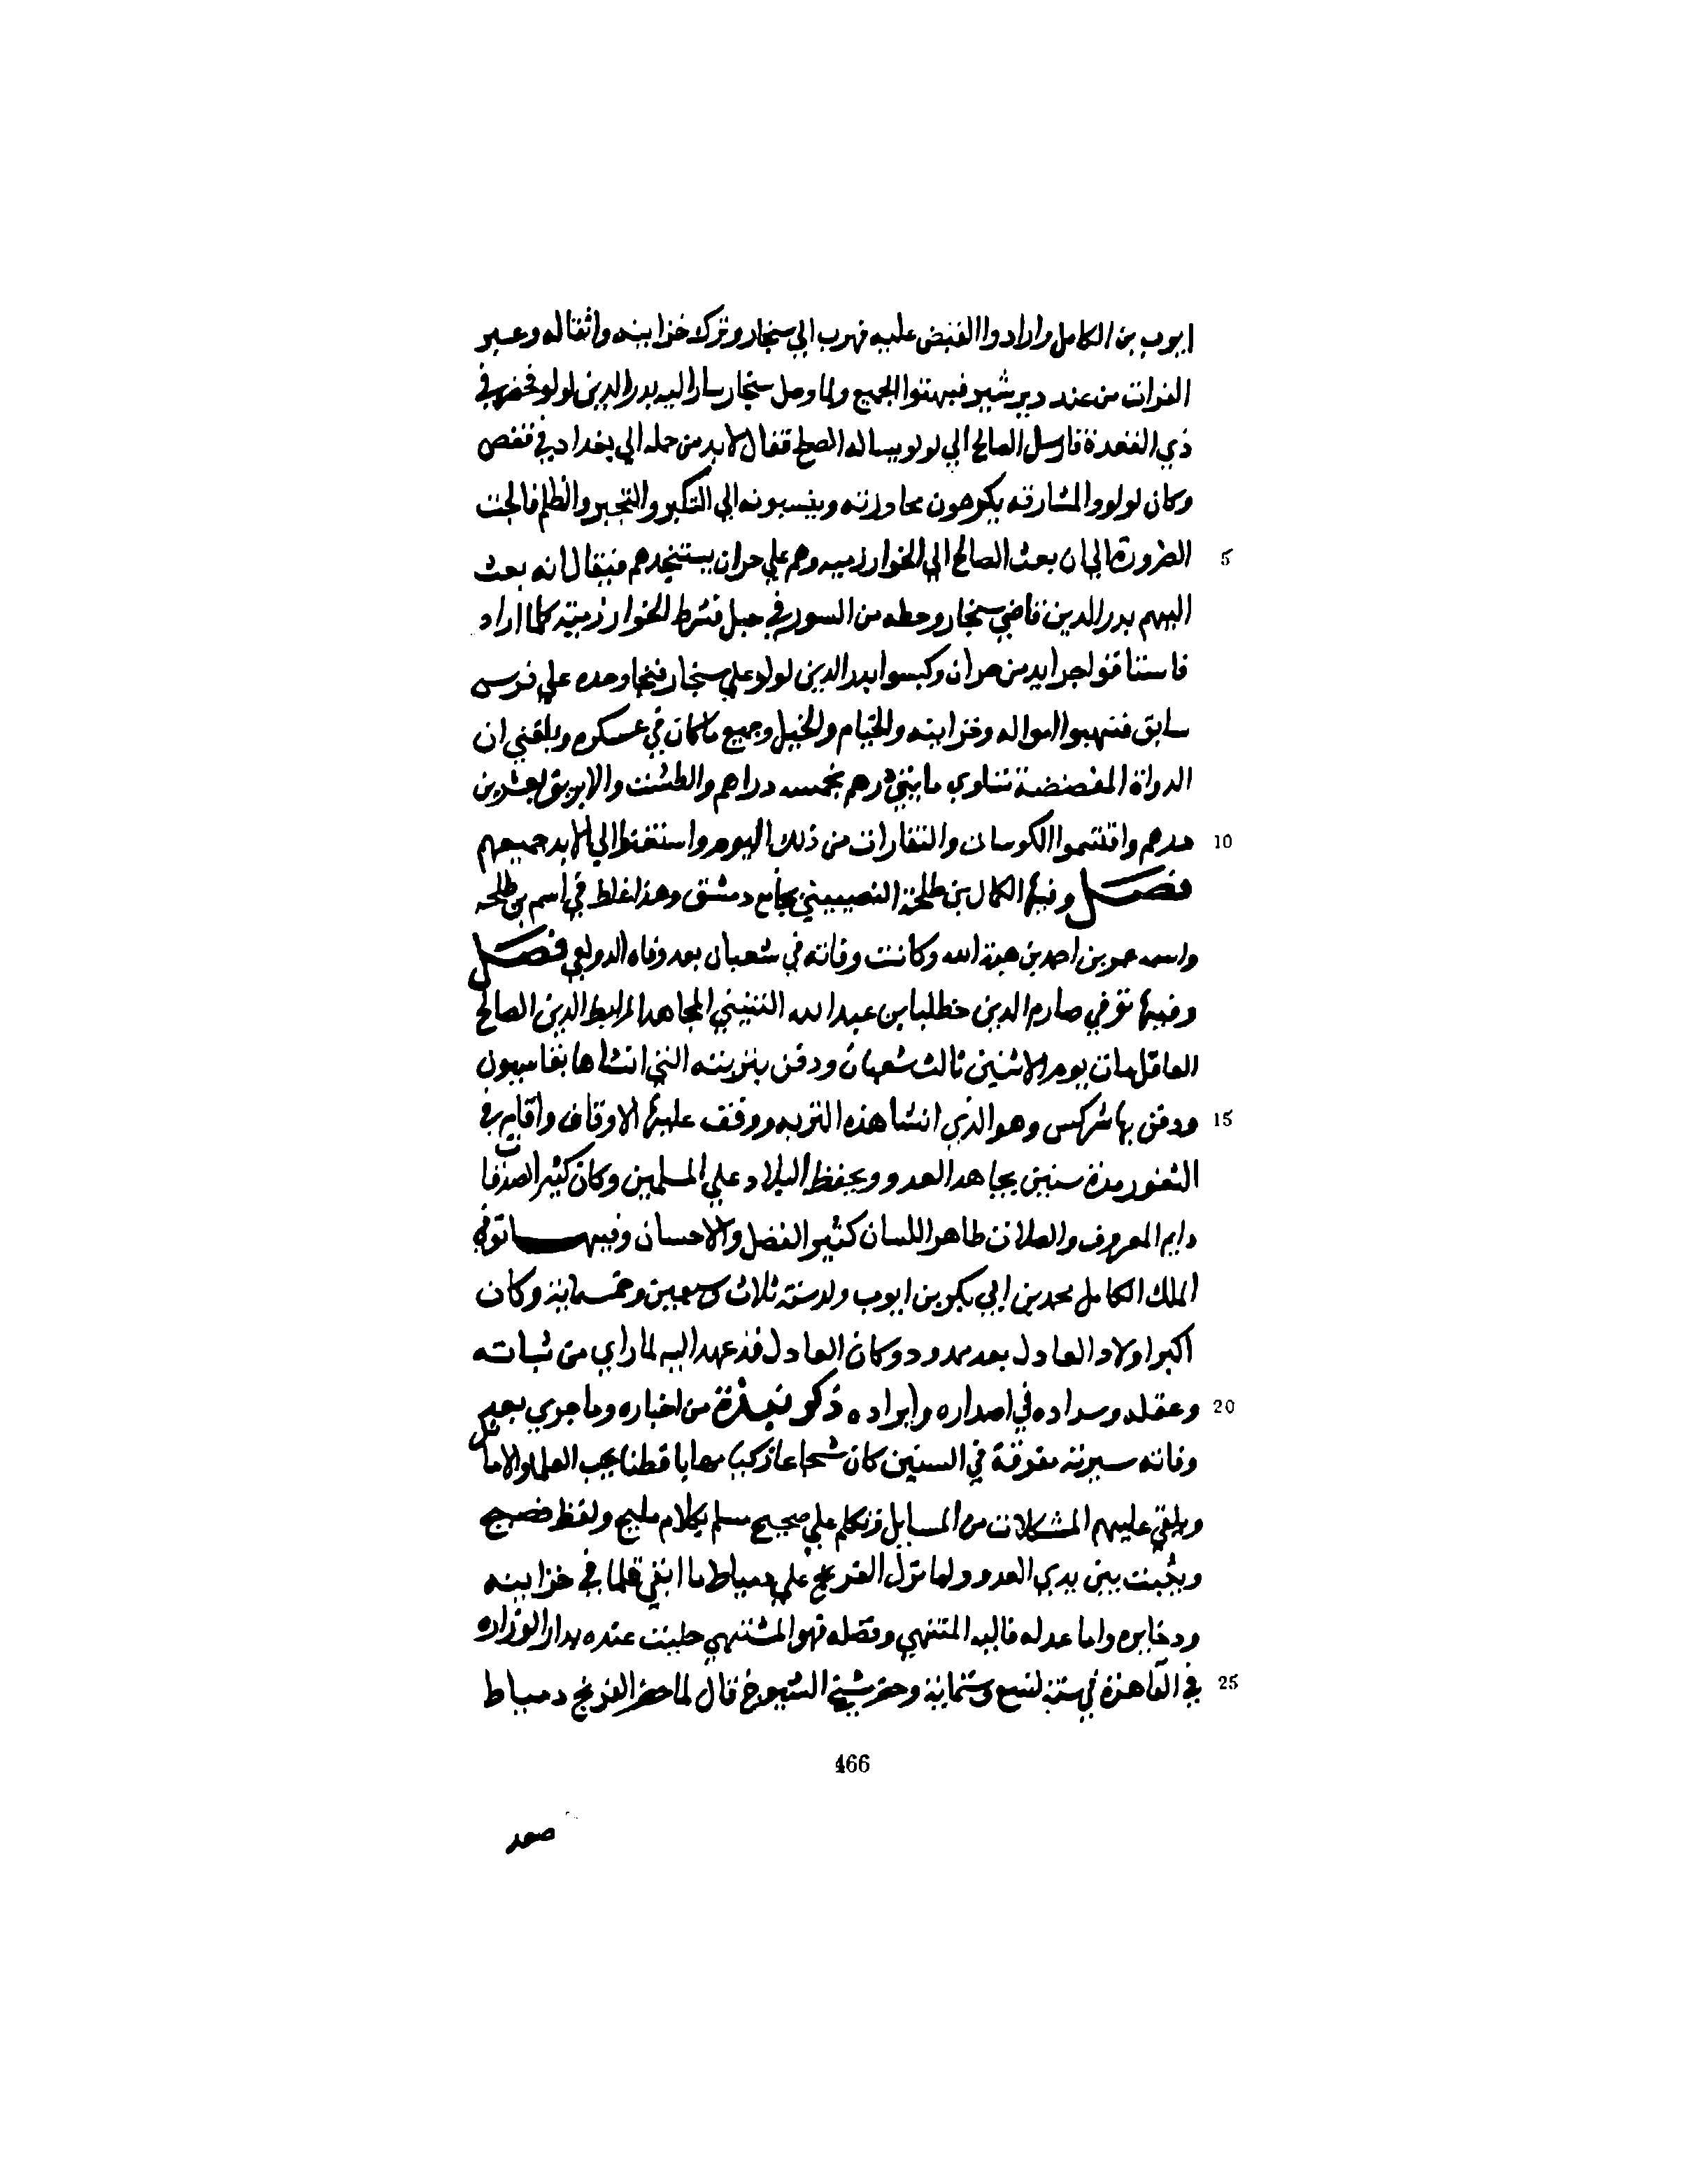 ايوب بن الكامل وارادوا القبض عليه فهرب الي سنجار وترك خزاينه واثقاله وعبر
الفرات من عند دير شير فنهبوا الجميع ولما وصل سنجار سار اليه بدر الدين لولو فحضره في
ذي القعدة فارسل الصالح الي لولو يساله الصلح فقال لا بد من حمله الي بغداد في قفص
وكان لولو والمشارقه يكرهون مجاورته وينسبونه الي التكبر والتجبر والظلم فالجت
5 الضرورة الي ان بعث الصالح الي الخوارزميه وهم علي حران يستنجدهم فيقال انه بعث
اليهم بدر الدين قاضي سنجار وحطه من السور في حبل فشرط الخوارزمية كلما اراد
فاستاقوا جرايد من حران وكبسوا بدر الدين لولو علي سنجار فنجا وحده علي فرس
سابق فنهبوا امواله وخزاينه والخيام والخيل وجميع ما كان في عسكره وبلغني ان
الدواة المفضضة تساوي مايتي درهم بخمسه دراهم والطشت والابريق بعشرين
10 درهم واقتسموا الكوسات والنقارات من ذلك اليوم واستغنوا الي الابد جميعهم
فصل وفيها الكمال بن طلحة النصيبيني بجامع دمشق وهذا غلط في اسم بن طلحه
واسمه عمر بن احمد بن هبة الله وكانت وفاته في شعبان بعد وفاه الدولعي فصل
وفيها توفي صارم الدين خطلبا بن عبد الله التنيني المجاهد المرابط الدين الصالح
العاقل مات يوم الاثنين ثالث شعبان ودفن بتربته التي انشاها بقاسيون
15 ودفن بها شركس وهو الذي انشا هذه التربه ووقف عليها الاوقاف واقام في
الثغور مدة سنين يجاهد العدو ويحفظ البلاد علي المسلمين وكان كثير الصدقات
دايم المعروف والصلات طاهر اللسان كثير الفضل والاحسان وفيها توفي
الملك الكامل محمد بن ابي بكر بن ايوب ولد سنة ثلاث وسبعين وخمسماية وكان
اكبر اولاد العادل بعد مودود وكان العادل قد عهد اليه لما راي من ثباته
20 وعقله وسداده في اصداره وايراده ذكر نبذة من اخباره وما جري بعد
وفاته سيرته مفرقة في السنين كان شجاعا ذكيا مهابا فطنا يحب العلما والاماثل
ويلقي عليهم المشكلات من المسايل وتكلم علي صحيح مسلم بكلام مليح ولفظ فصيح
ويثبت بين يدي العدو ولما نزل الفرنج علي دمياط ما ابقي قلما في خزاينه
ودخايره واما عدله فاليه المنتهي وفضله فهو المشتهي جلست عنده بدار الوزاره
25 في القاهرة في سنة تسع وستماية وحضر شيخ الشيوخ فقال لما حضر الفرنج دمياط
466
صعد